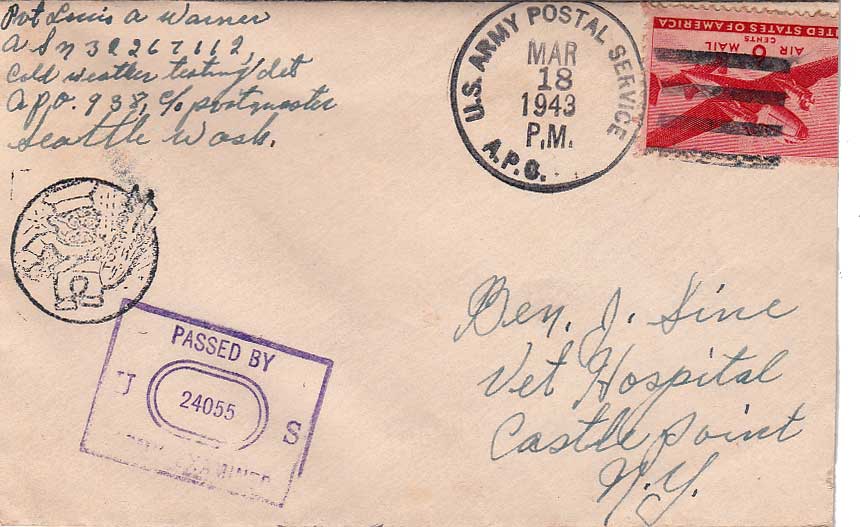 Pvt Louis A Warner
A S N 32267112,
Cold weather testing det
A.P.O. 938, c/o postmaster
Seattle Wash.
U.S. ARMY POSTAL SERVICE
MAR
18
1943
P.M.
A.P.O.
UNITED STATES OF AMERICA
6 CENTS
AIR MAIL
PASSED BY
U 24055 S
ARMY EXAMINER
Ben. J. Sine
Vet Hospital
Castle Point
N.Y.